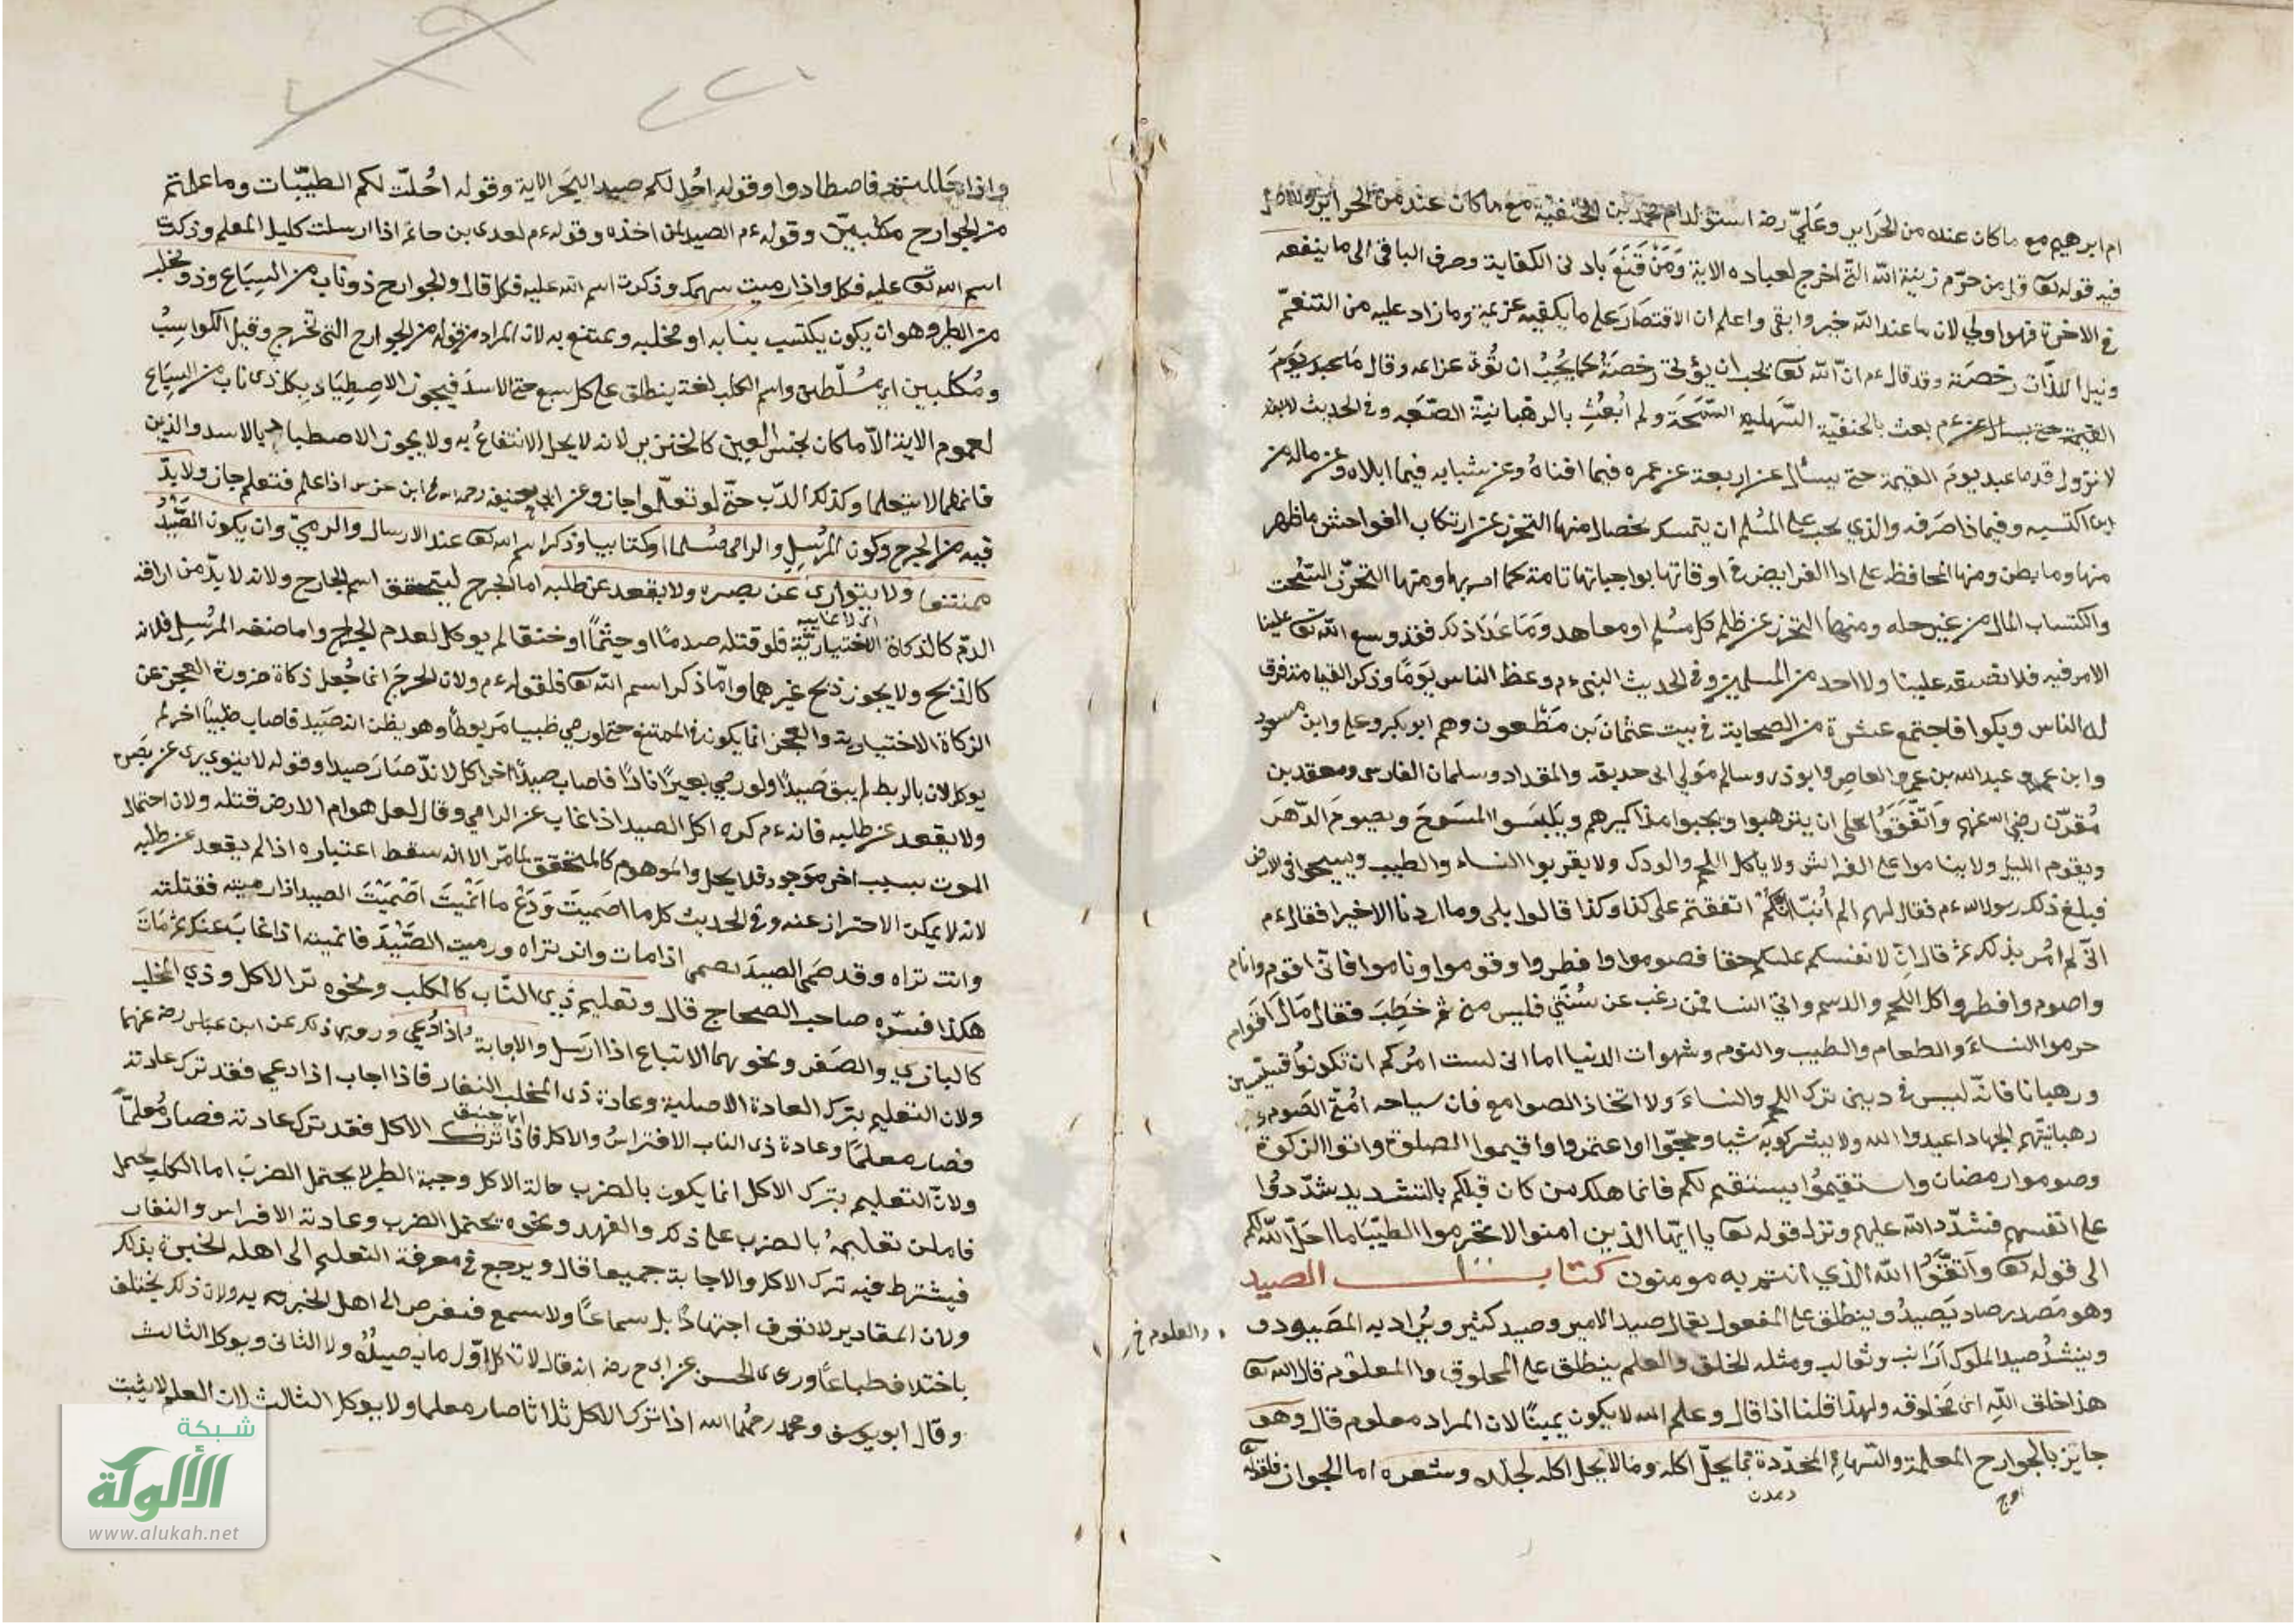 ام ابرهيم مع ماكان عنده من الحراير وعليّ رضه استولد ام محمد بن الحنفية مع ماكان عنده من الحراير والاصل
فيه قوله تعا قل من حرّم زينة الله التي اخرج لعباده الاية ومن قنع بادنى الكفاية وصرف الباقي الى ما ينفعه
في الاخرة فهو اولى لان ما عند الله خير وابقى واعلم ان الاقتصار على ما يكفيه عزيمة وما زاد عليه من التنعّم
ونيل اللذّات رخصة وقد قال ءم انّ الله تعا يحب ان يؤتى رخصة كما يحب ان تؤتى عزائمه وقال
بعث بالحنفيّة السّهلية السّمحة ولم ابعث بالرهبانيّة الصّعبه وفي الحديث
لا تزول قدما عبد يوم القيمة حتى يسأل عن اربعة عن عمره فيما افناهُ وعن شبابه فيما ابلاه وعن ماله من
اين اكتسبه وفيما ذا صرفه والذي يجب على المسلم ان يتمسك بخصال منها التحرز عن ارتكاب الفواحش ما ظهر
منها وما بطن ومنها المحافظه على ادا الفرايض في اوقاتها بواجباتها تامة كما امر بها ومنها التحرّز السّحت
واكتساب المال من غير حله ومنها التحرز عن ظلم كل مسلم او معاهد وما عدا ذلك فقد وسع الله تعا علينا
الامر فيه فلا نضيقه علينا ولا احد من المسلمين وفي الحديث النبي ءم وعظ الناس يوما وذكر القيامة فرق
له الناس وبكوا فاجتمع عشرة من الصحابة في بيت عثمان بن مظعون وهم ابو بكر وعلي وابن مسعود
وابن عمر وعبد الله بن عمرو العاص وابو ذر وسالم مولى ابي حذيفة والمقداد وسلمان الفارسي ومعقد بن
مقرّن رضي الله عنهم واتّفقوا على ان يترهبوا ويجبوا مذاكيرهم ويلبسوا المسوح ويصوم الدّهر
ويقوم الليل ولا يناموا على الفراش ولا ياكل اللحم والودك ولا يقربوا النساء والطيب ويسيحوا في الارض
فبلغ ذلك رسول الله ءم فقال لهم الم انبّا انكم اتفقتم على كذا وكذا قالوا بلى وما اردنا الا خيرا فقال ءم
انّي لم امر بذلك ثم قال انّ لانفسكم عليكم حقا فصوموا وافطروا وقوموا وناموا فانّي اقوم وانام
واصوم وافطر واكل اللحم والدسم واتي النسا فمن رغب عن سنّتي فليس مني ثم خطب فقال ما بال اقوام
حرموا النساء والطعام والطيب والنوم وشهوات الدنيا اما اني لست امركم ان تكونوا قسيسين
ورهبانا فانّه ليس في ديني ترك اللحم والنساء ولا اتخاذ الصوامع فان سياحه امّتي الصوم
رهبانيّتهم الجهاد اعبدوا الله ولا يشركوا به شيا وحجّوا واعتمروا واقيموا الصلوة واتوا الزكوة
وصوموا رمضان واستقيموا يستقم لكم فانما هلك من كان قبلكم بالتشديد شدّدوا
على انفسهم فشدّد الله عليهم ونزل قوله تعا يا ايّها الذين امنوا لا تحرموا الطيّبا ما احلّ الله لكم
الى قوله تعا واتّقوا الله الذي انتم به مومنون كتاب الصيد
وهو مصدر صاد يصيد وينطلق على المفعول يقال صيد الامير وصيد كثير ويراد به المصيود
وينشد صيد الملوك ارانب وثعالب ومثله الخلق والعلم ينطلق على المخلوق والمعلوم قال الله تعا
والعلوم خ
هذا خلق الله اي مخلوقه ولهذا قلنا اذا قال وعلم الله لا يكون يمينًا لان المراد معلوم قال وهو
جايز بالجوارح المعلمة والسّهام المحدّدة مما يحلّ اكله وما لا يحل اكله لجلده وشعره اما الجواز فلقوله تعا
واذا حللتم فاصطادوا وقوله احل لكم صيد البحر الاية وقوله احلّت لكم الطيّبات وما علمتم
من الجوارح مكلبين وقوله ءم الصيد لمن اخذه وقوله ءم لعدى بن حاتم اذا ارسلت كلبك المعلم وذكرت
اسم الله تعا عليه فكل واذا رميت سهمك وذكرت اسم الله عليه فكل قال والجوارح ذو ناب من السباع وذو مخلب
من الطير وهو ان يكون يكتسب بنابه او مخلبه ويمتنع به لان المراد من قوله من الجوارح التي تخرج وقيل الكواسب
ومكلبين اي مسلّطين واسم الكلب لغة ينطلق على كل سبع حتى الاسد فيجوز الاصطياد بكل ذي ناب من السباع
لعموم الاية الّا ما كان نجس العين كالخنزير لانه لا يحل الانتفاع به ولا يجوز الاصطياد بالاسد والذيب
فانهما لا يتعلما وكذلك الدّب حتّى لو تعلّموا جاز وعن ابي حنيفة رحمه الله في ابن عرس اذا علم فتعلم جاز ولا بدّ
فيه من الجرح وكون المرسل والرامي مسلما او كتابيا وذكر اسم الله تعا عند الارسال والرمي وان يكون الصيد
ممتنعا ولا يتوارى عن بصره ولا يقعد عن طلبه اما الجرح ليتحقق اسم الجارح ولانه لا بدّ من اراقة
الدم كالذكاة الاختياريّة فلو قتله صدما او جثما او خنقا لم يوكل لعدم الجرح واما صفة المرسل فلانه
كالذبح ولا يجوز ذبح غيرهما وامّا ذكر اسم الله تعا فلقوله ءم ولان الجرح انما جعل ذكاة ضرورة العجز عن
الزكاة الاختيارية والعجز انما يكون في الممتنع حتى لو رمي ظبيا مربوطا وهو يظن انه صيد فاصاب ظبيا اخر لم
يوكل لان بالربط لم يبق صيدا ولو رمي بعيرًا نادًا فاصاب صيدًا اخر اكل لانه صار صيدا وقوله لا يتوارى عن بصره
ولا يقعد عن طلبه فانه ءم كره اكل الصيد اذا غاب عن الرامي وقال لعل هوام الارض قتله ولان احتمال
الموت بسبب اخر موجود فلا يحل والموهوم كالمتحقق لما مرّ الا انه سقط اعتباره اذا لم يقعد عن طلبه
لانه لا يمكن الاحتراز عنه وفي الحديث كل ما اصميت ودع ما انميت اصميت الصيد اذا رميته فقتلته
وانت تراه وقد صمى الصيد يصمي اذا مات وانت تراه ورميت الصيد فانميته اذا غاب عنك ثم مات
هكذا فسّره صاحب الصحاح قال وتعليم ذي الناب كالكلب ونحوه ترك الاكل وذي المخلب
كالبازي والصقر ونحوهما الاتباع اذا ارسل والاجابة اذا دعي وروي ذلك عن ابن عباس رضي عنهما
ولان التعليم بترك العادة الاصلية وعادة ذي المخلب النفار فاذا اجاب اذا دعي فقد ترك عادته
فصار معلمًا وعادة ذي الناب الافتراس والاكل فاذا ترك الاكل فقد ترك عادته فصار معلمًا
ولانّ التعليم بترك الاكل انما يكون بالضرب حالة الاكل وجثة الطير لا يحتمل الضرب اما الكلب يحتمل
فامكن تعليمهُ بالضرب على ذلك والفهد ونحوه يحتمل الضرب وعادته الافراس والنفار
فيشترط فيه ترك الاكل والاجابة جميعا قال ويرجع في معرفة التعليم الى اهله الخبرة بذلك
ولان المقادير لا تعرف اجتهادًا بل سماعًا ولا سمع فيفوض الى اهل الخبرة به ولان ذلك يختلف
باختلاف طباعًا وروى الحسن عن ابي ح رضه انه قال لا تاكل اوّل ما يصيدُ ولا الثاني ويوكل الثالث
وقال ابو يوسف ومحمد رحمهما الله اذا ترك الاكل ثلاثا صار معلما ولا يوكل الثالث لان العلم لا يثبت
شبكة
الألوكة
www.alukah.net